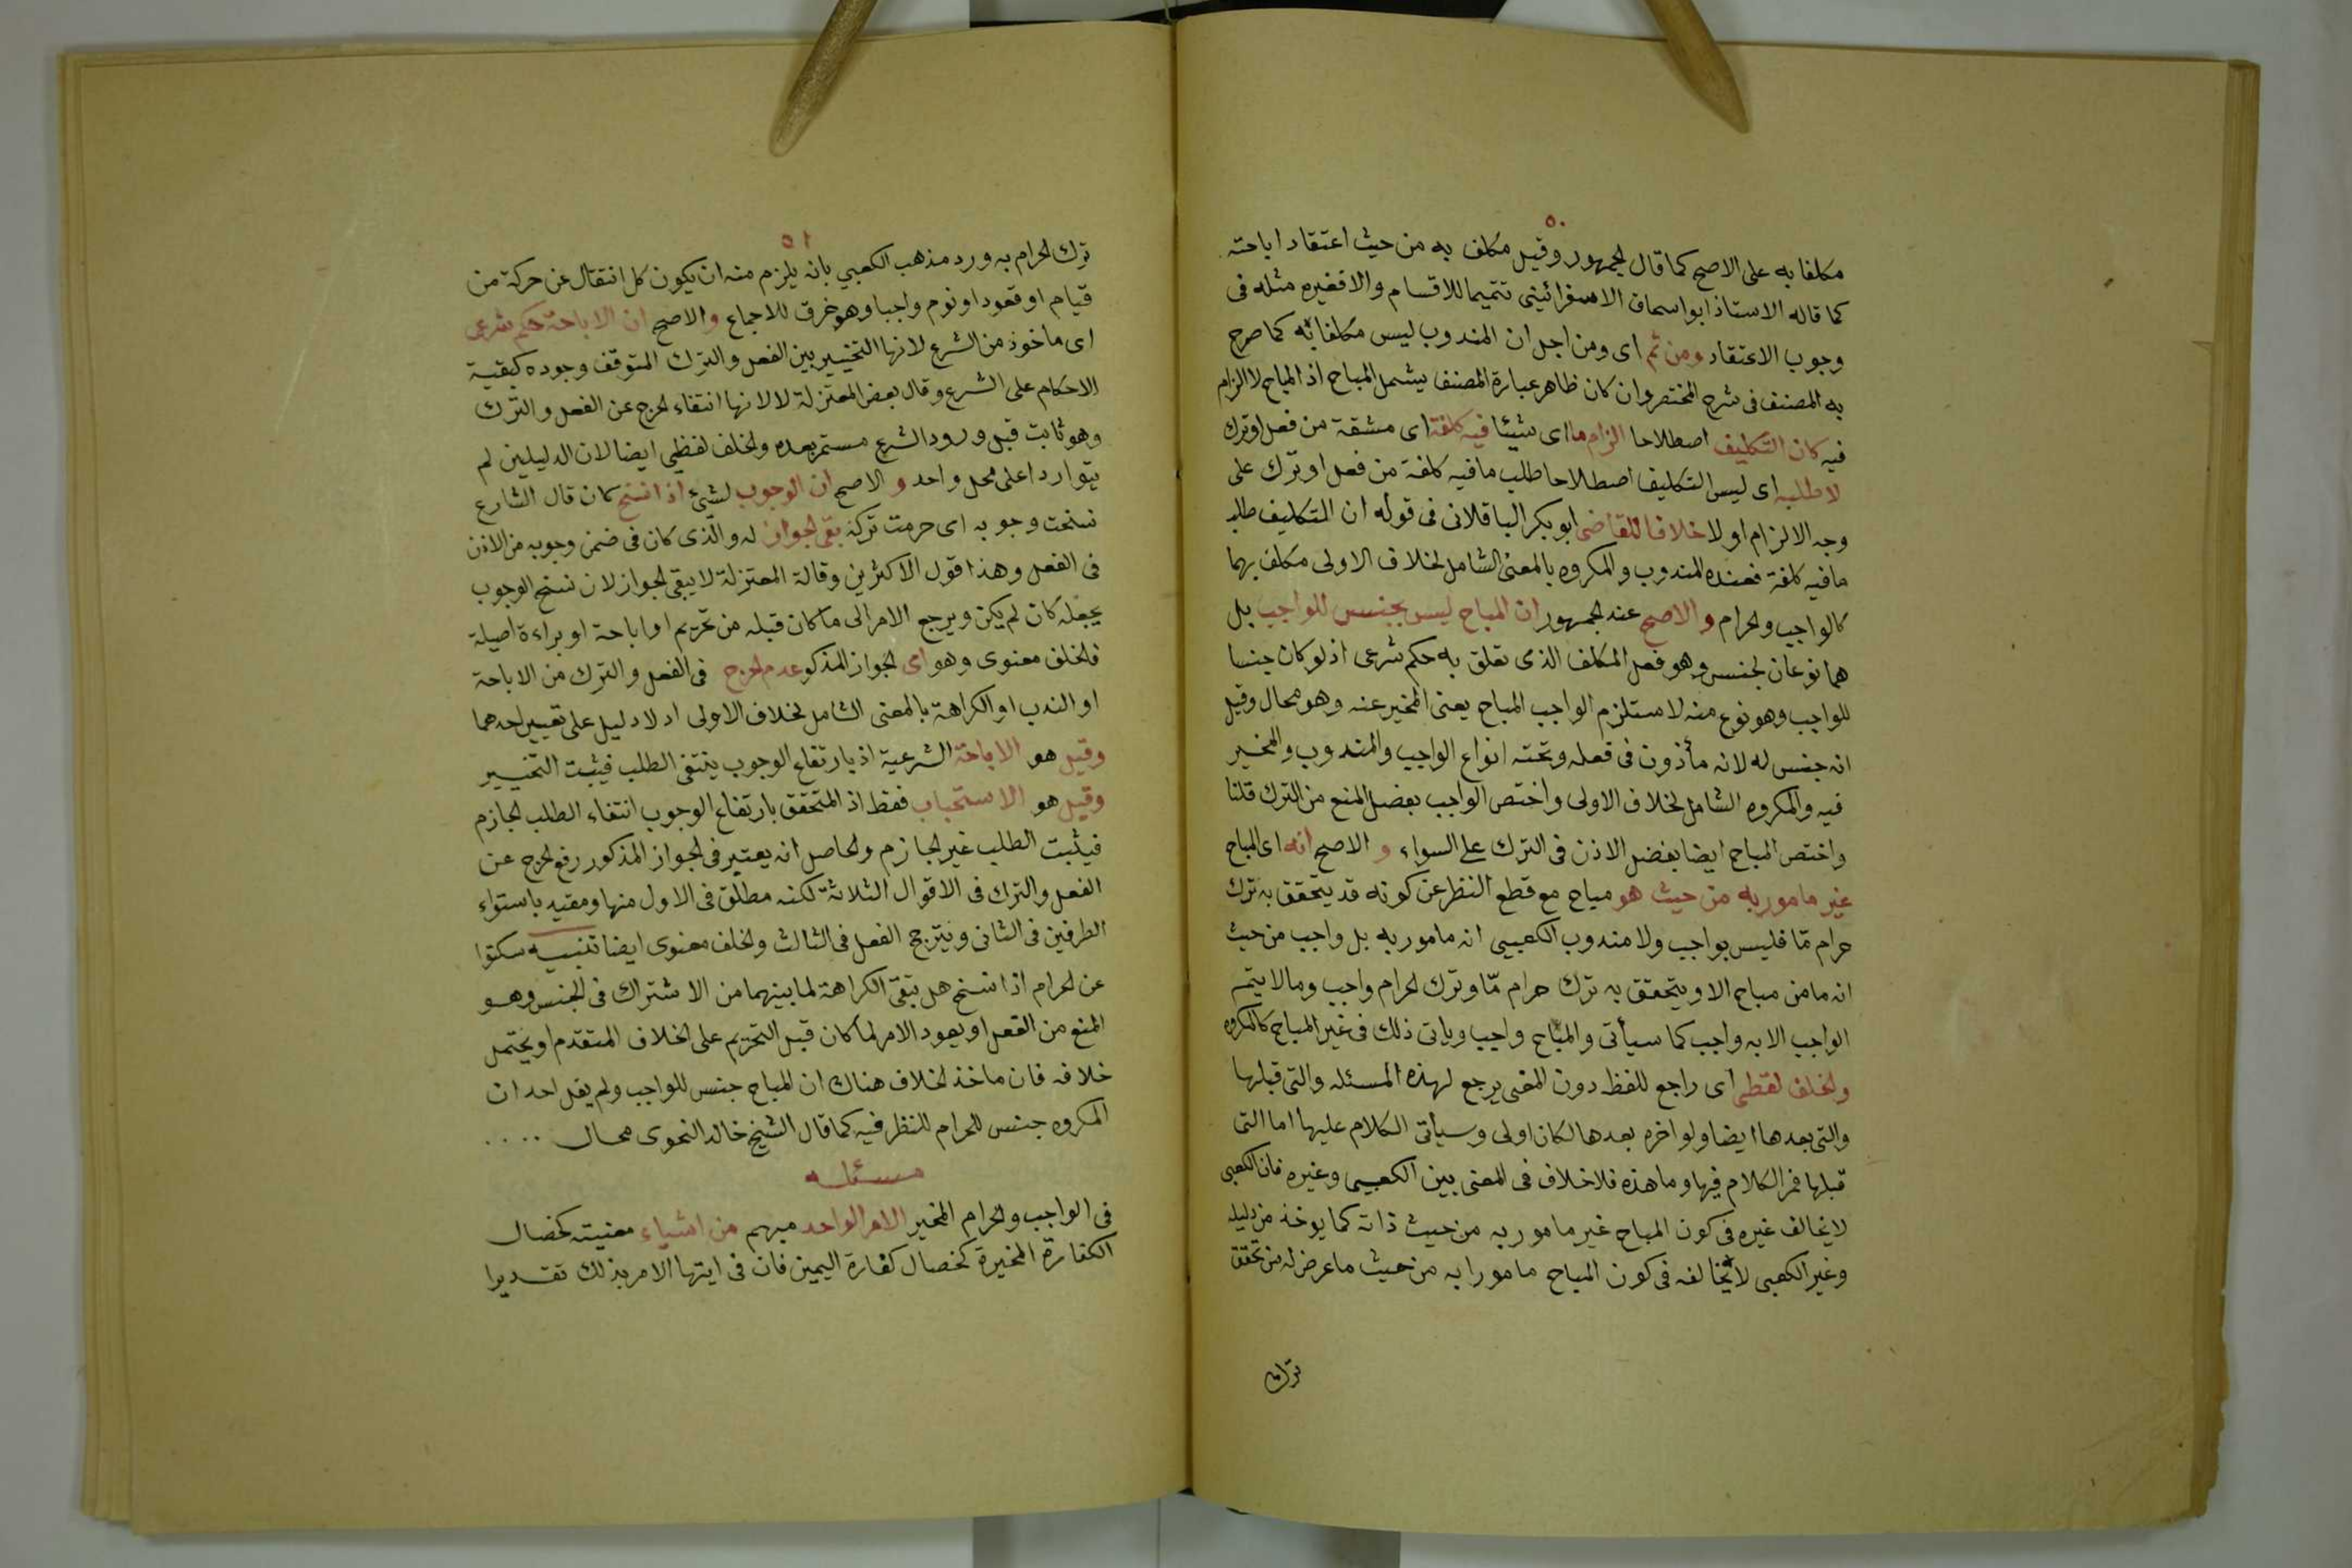 ٥٠
مكلفا به على الاصح كما قال الجمهور وقيل مكلف به من حيث اعتقاد اباحته
كما قاله الاستاذ ابو اسحاق الاسفرائيني تتميما للاقسام والا فغيره مثله فى
وجوب الاعتقاد ومن ثم اى ومن اجل ان المندوب ليس مكلفا به كما صرح
به المصنف فى شرح المختصر وان كان ظاهر عبارة المصنف يشمل المباح اذ المباح لا الزام
فيه كان التكليف اصطلاحا الزام ما اى شيئا فيه كلفة اى مشقة من فعل او ترك
لا طلبه اى ليس التكليف اصطلاحا طلب ما فيه كلفة من فعل او ترك على
وجه الالزام او لا خلافا للقاضى ابو بكر الباقلانى فى قوله ان التكليف طلب
ما فيه كلفة فعنده المندوب والمكروه بالمعنى الشامل لخلاف الاولى مكلف بهما
كالواجب والحرام والاصح عند الجمهور ان المباح ليس بجنس للواجب بل
هما نوعان لجنس وهو فعل المكلف الذى تعلق به حكم شرعى اذ لو كان جنسا
للواجب وهو نوع منه لاستلزم الواجب المباح يعنى المخير عنه وهو محال وقيل
انه جنس له لانه مأذون فى فعله وتحته انواع الواجب والمندوب والمخير
فيه والمكروه الشامل لخلاف الاولى واختص الواجب بفضل المنع من الترك قلنا
واختص المباح ايضا بفضل الاذن فى الترك على السواء و الاصح انه اى المباح
غير مامور به من حيث هو مباح مع قطع النظر عن كونه قد يتحقق به ترك
حرام مّا فليس بواجب ولا مندوب الكعبيى انه مامور به بل واجب من حيث
انه ما من مباح الا ويتحقق به ترك حرام مّا وترك الحرام واجب وما لا يتم
الواجب الا به واجب كما سيأتى والمباح واجب وياتى ذلك فى غير المباح كالمكروه
والخلف لفظى اى راجع للفظ دون المعنى يرجع لهذه المسئله والتى قبلها
والتى بعدها ايضا ولو اخره بعدها لكان اولى وسياتى الكلام عليها اما التى
قبلها فمر الكلام فيها وما هذه فلا خلاف فى المعنى بين الكعبيى وغيره فان الكعبى
لا يخالف غيره فى كون المباح غير مامور به من حيث ذاته كما يوخذ من دليله
وغير الكعبى لا يخالفه فى كون المباح مامورا به من حيث ما عرض له من تحقق
ترك
٥١
ترك الحرام به ورد مذهب الكعبي بانه يلزم منه ان يكون كل انتقال عن حركة من
قيام او قعود او نوم واجبا وهو خرق للاجماع والاصح ان الاباحة حكم شرعى
اى ماخوذ من الشرع لانها التخيير بين الفعل والترك المتوقف وجوده كبقية
الاحكام على الشرع وقال بعض المعتزلة لا لانها انتفاء الحرج عن الفعل والترك
وهو ثابت قبل ورود الشرع مستمر بعده والخلف لفظي ايضا لان الدليلين لم
يتواردا على محل واحد و الاصح ان الوجوب لشئ اذا نسخ كان قال الشارع
نسخت وجوبه اى حرمت تركه بقى الجواز له والّذى كان فى ضمن وجوبه من الاذن
فى الفعل وهذا قول الاكثرين وقالة المعتزلة لا يبقى الجواز لان نسخ الوجوب
يجعله كان لم يكن ويرجع الامر الى ما كان قبله من تحريم او اباحة او براءة اصيلة
فالخلف معنوى وهو اى الجواز المذكو عدم الحرج فى الفعل والترك من الاباحة
او الندب او الكراهة بالمعنى الشامل لخلاف الاولى اد لا دليل على تعيير احدهما
وقيل هو الاباحة الشرعية اذ بارتفاع الوجوب ينتفى الطلب فيثبت التخيير
وقيل هو الاستحباب فقط اذ المتحقق بارتفاع الوجوب انتفاء الطلب الجازم
فيثبت الطلب غير الجازم والحاصل انه يعتبر فى الجواز المذكور رفع الحرج عن
الفعل والترك فى الاقوال الثلاثة لكنه مطلق فى الاول منها ومقيد باستواء
الطرفين فى الثانى ويترجح الفعل فى الثالث والخلف معنوى ايضا تنبيه سكتوا
عن الحرام اذا نسخ هل تبقى الكراهة لما بينهما من الاشتراك فى الجنس وهو
المنع من الفعل او يعود الامر لما كان قبل التحريم على الخلاف المتقدم او يحتمل
خلافه فان ماخذ الخلاف هناك ان المباح جنس للواجب ولم يقل احد ان
المكروه جنس للحرام للنظر فيه كما قال الشيخ خالد النحوى محال ....
مسئله
فى الواجب والحرام المخير الامر الواحد مبهم من اشياء معنيته كخصال
الكفارة المخيرة كخصال كفارة اليمين فان فى ايتها الامر بذلك تقديرا